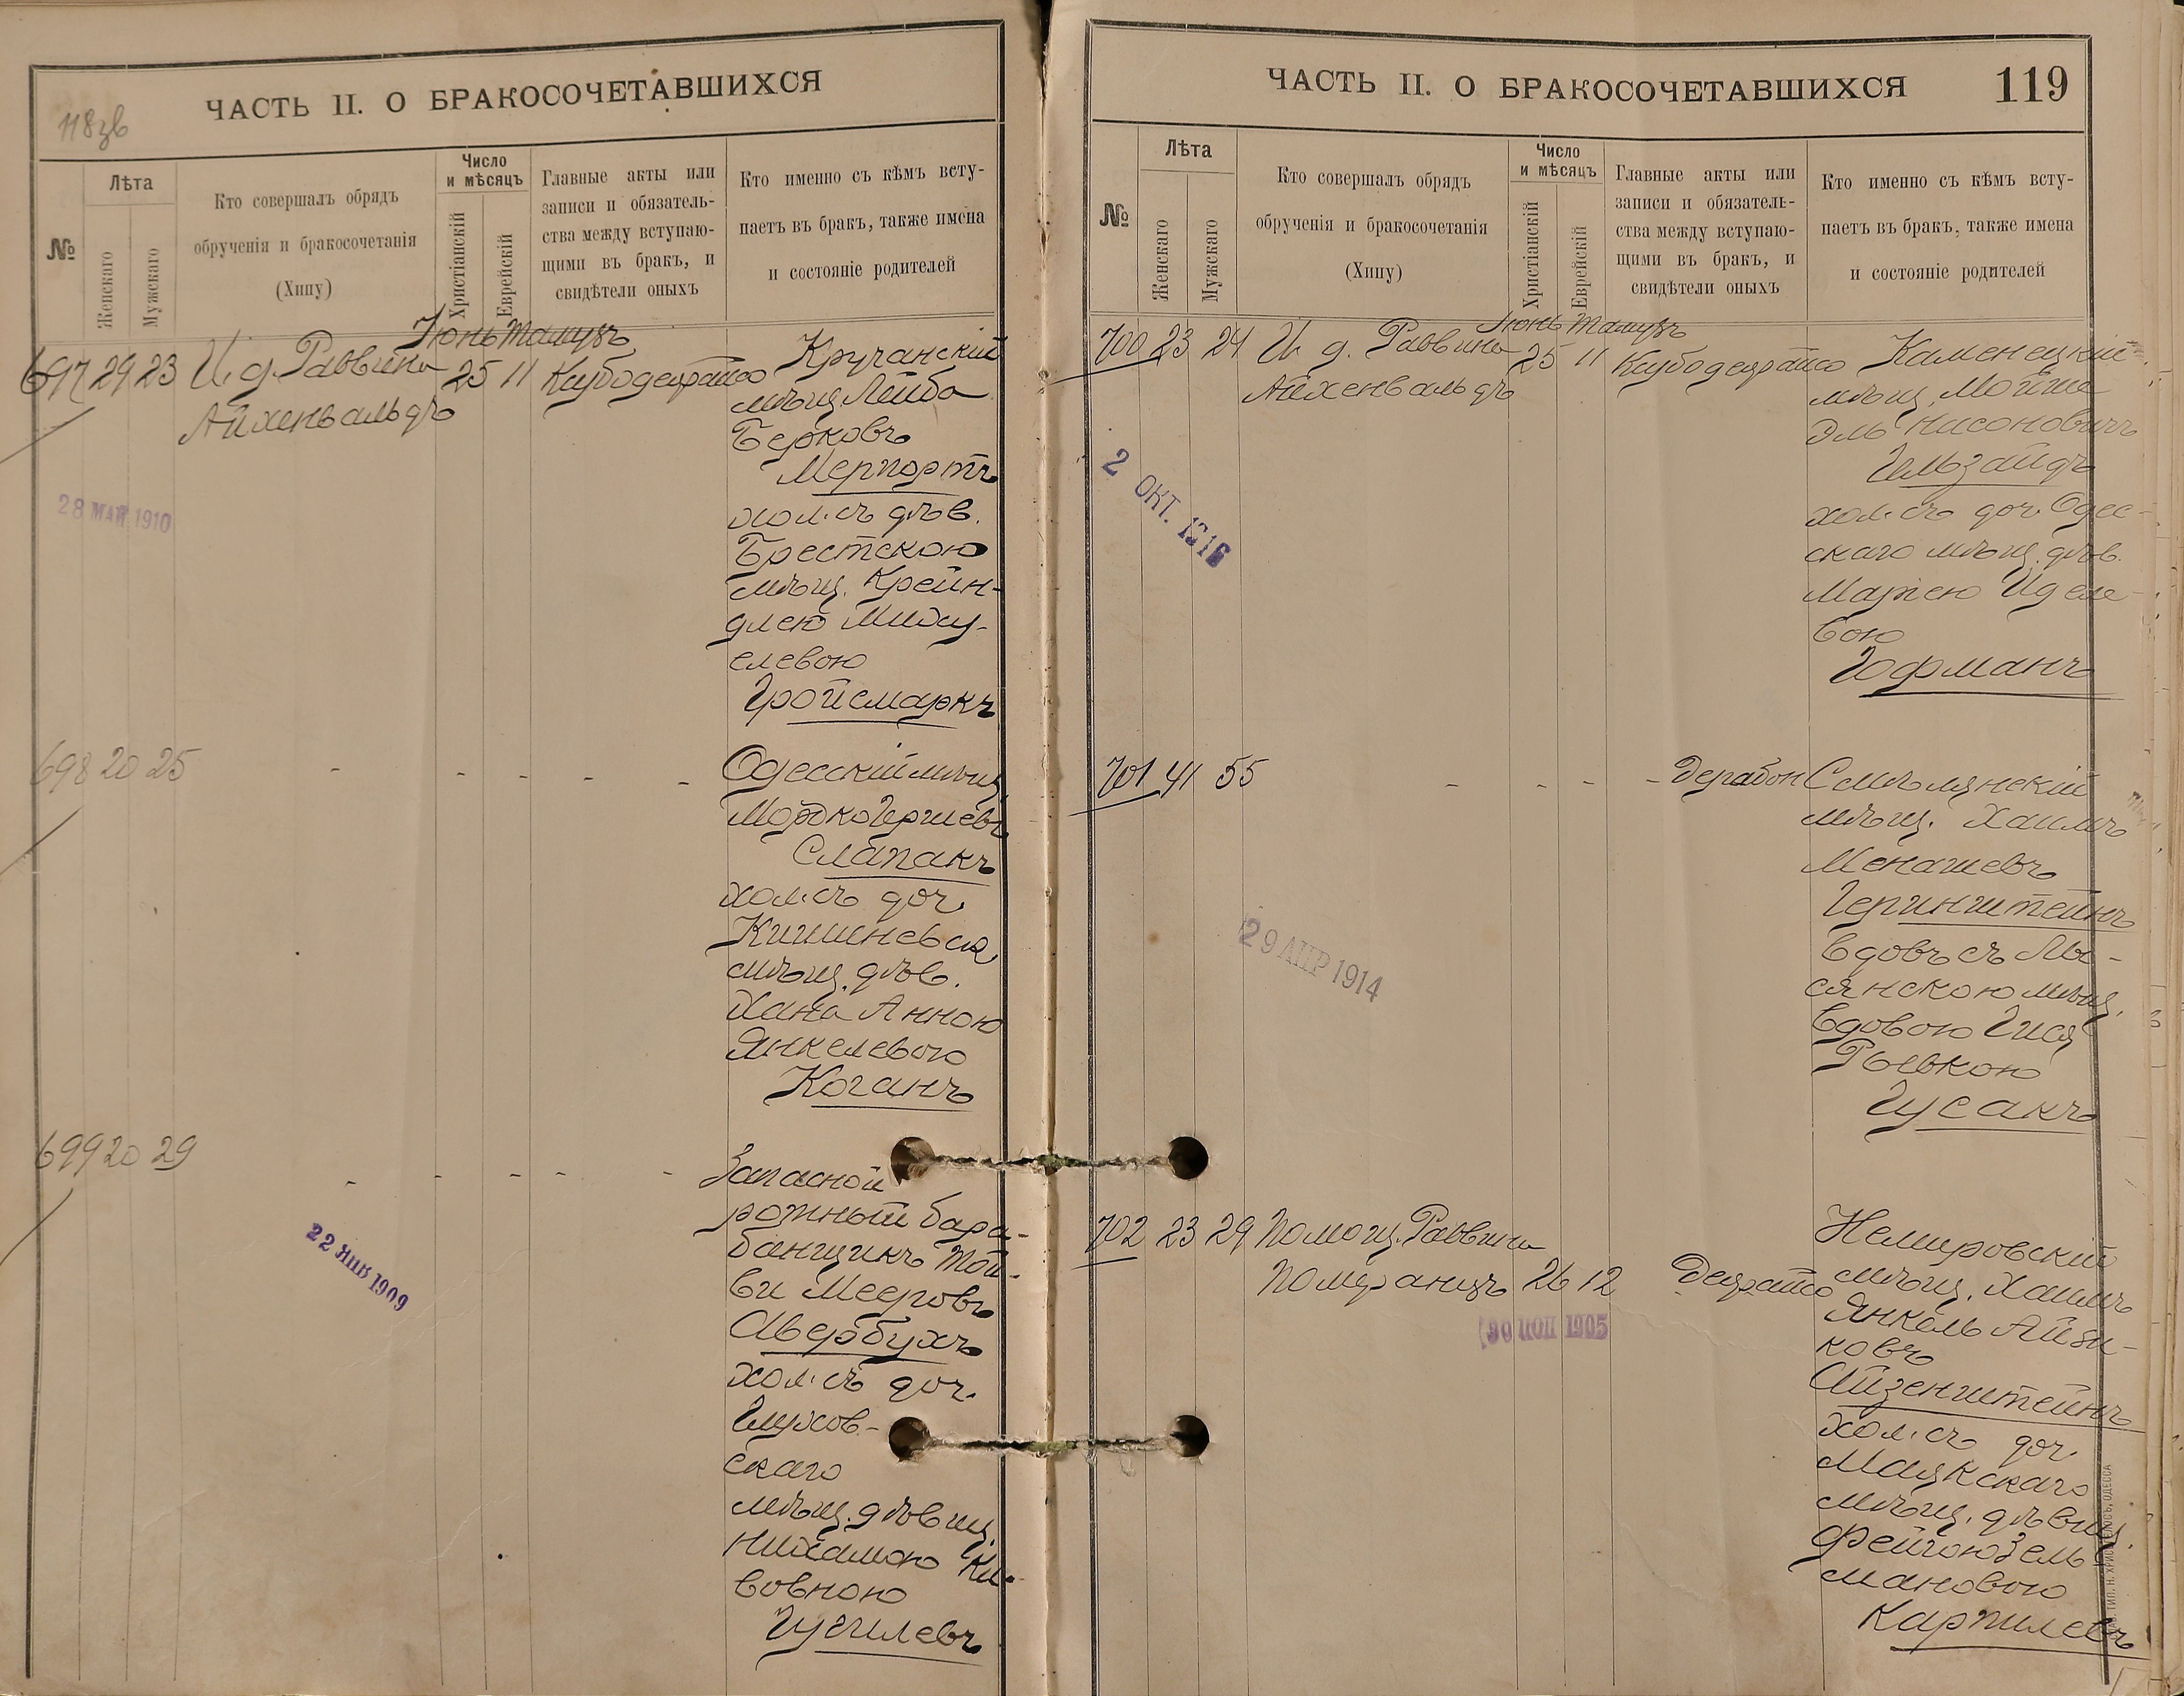 118 зв
ЧАСТЬ II. О БРАКОСОЧЕТАВШИХСЯ
№
Лѣта
Женскаго
Мужскаго
Кто совершалъ обрядъ
обрученія и бракосочетанія
(Хипу)
Число
и мѣсяцъ
Христіанскій
Еврейскій
Главные акты или
записи и обязатель-
ства между вступаю-
щими въ бракъ, и
свидѣтели оныхъ
Кто именно съ кѣмъ всту-
паетъ въ бракъ, также имена
и состояніе родителей
Іюнь Тамузъ
697 29 23 И. д. Раввина 25 11
Айхенвальдъ
28 МАЯ 1910
мѣщ. Лейба
Берковъ
Мерпортъ
хол. съ дѣв.
Брестскою
мѣщ. Крейн-
длею Миху-
елевою
Гройсмаркъ
698 20 25 - - - - -
Одесскій мѣщ.
Мордко Гершевъ
Слапакъ
хол. съ доч.
Кишиневск.
мѣщ. дѣв.
Хана Анною
Янкелевою
Коганъ
699 20 29 - - - - -
22 ЯНВ 1909
Запасной
ротный бара-
банщикъ Той-
ви Мееровъ
Авербухъ
хол. съ доч.
Глухов-
скаго
мѣщ. дѣвиц.
Нихамою Ки-
вовною
ЧАСТЬ II. О БРАКОСОЧЕТАВШИХСЯ
119
№
Лѣта
Женскаго
Мужскаго
Кто совершалъ обрядъ
обрученія и бракосочетанія
(Хипу)
Число
и мѣсяцъ
Христіанскій
Еврейскій
Главные акты или
записи и обязатель-
ства между вступаю-
щими въ бракъ, и
свидѣтели оныхъ
Кто именно съ кѣмъ всту-
паетъ въ бракъ, также имена
и состояніе родителей
Іюнь Тамузъ
700 23 24 И. д. Раввина 25 11
Айхенвальдъ
2 ОКТ. 1916
Каменецкій
мѣщ. Мойше
Эль Нисоновичъ
Гельзайдъ
хол. съ доч. Одес-
скаго мѣщ. дѣв.
Маріею Иделе-
вою
Гофманъ
701 41 55 - - - -
29 АПР 1914
Смѣлянскій
мѣщ. Хаимъ
Менашевъ
Геринштейнъ
вдовъ съ Лы-
сянскою мѣщ.
вдовою Гися
Рывкою
Гусакъ
702 23 29 Помощ. Раввина
Померанцъ 26 12
1905
Немировскій
мѣщ. Хаимъ
Янкель Айзи-
ковъ
Айзенштейнъ
хол. съ доч.
Маякскаго
мѣщ. дѣвиц.
Фейгою Зель-
мановою
Карпилевъ